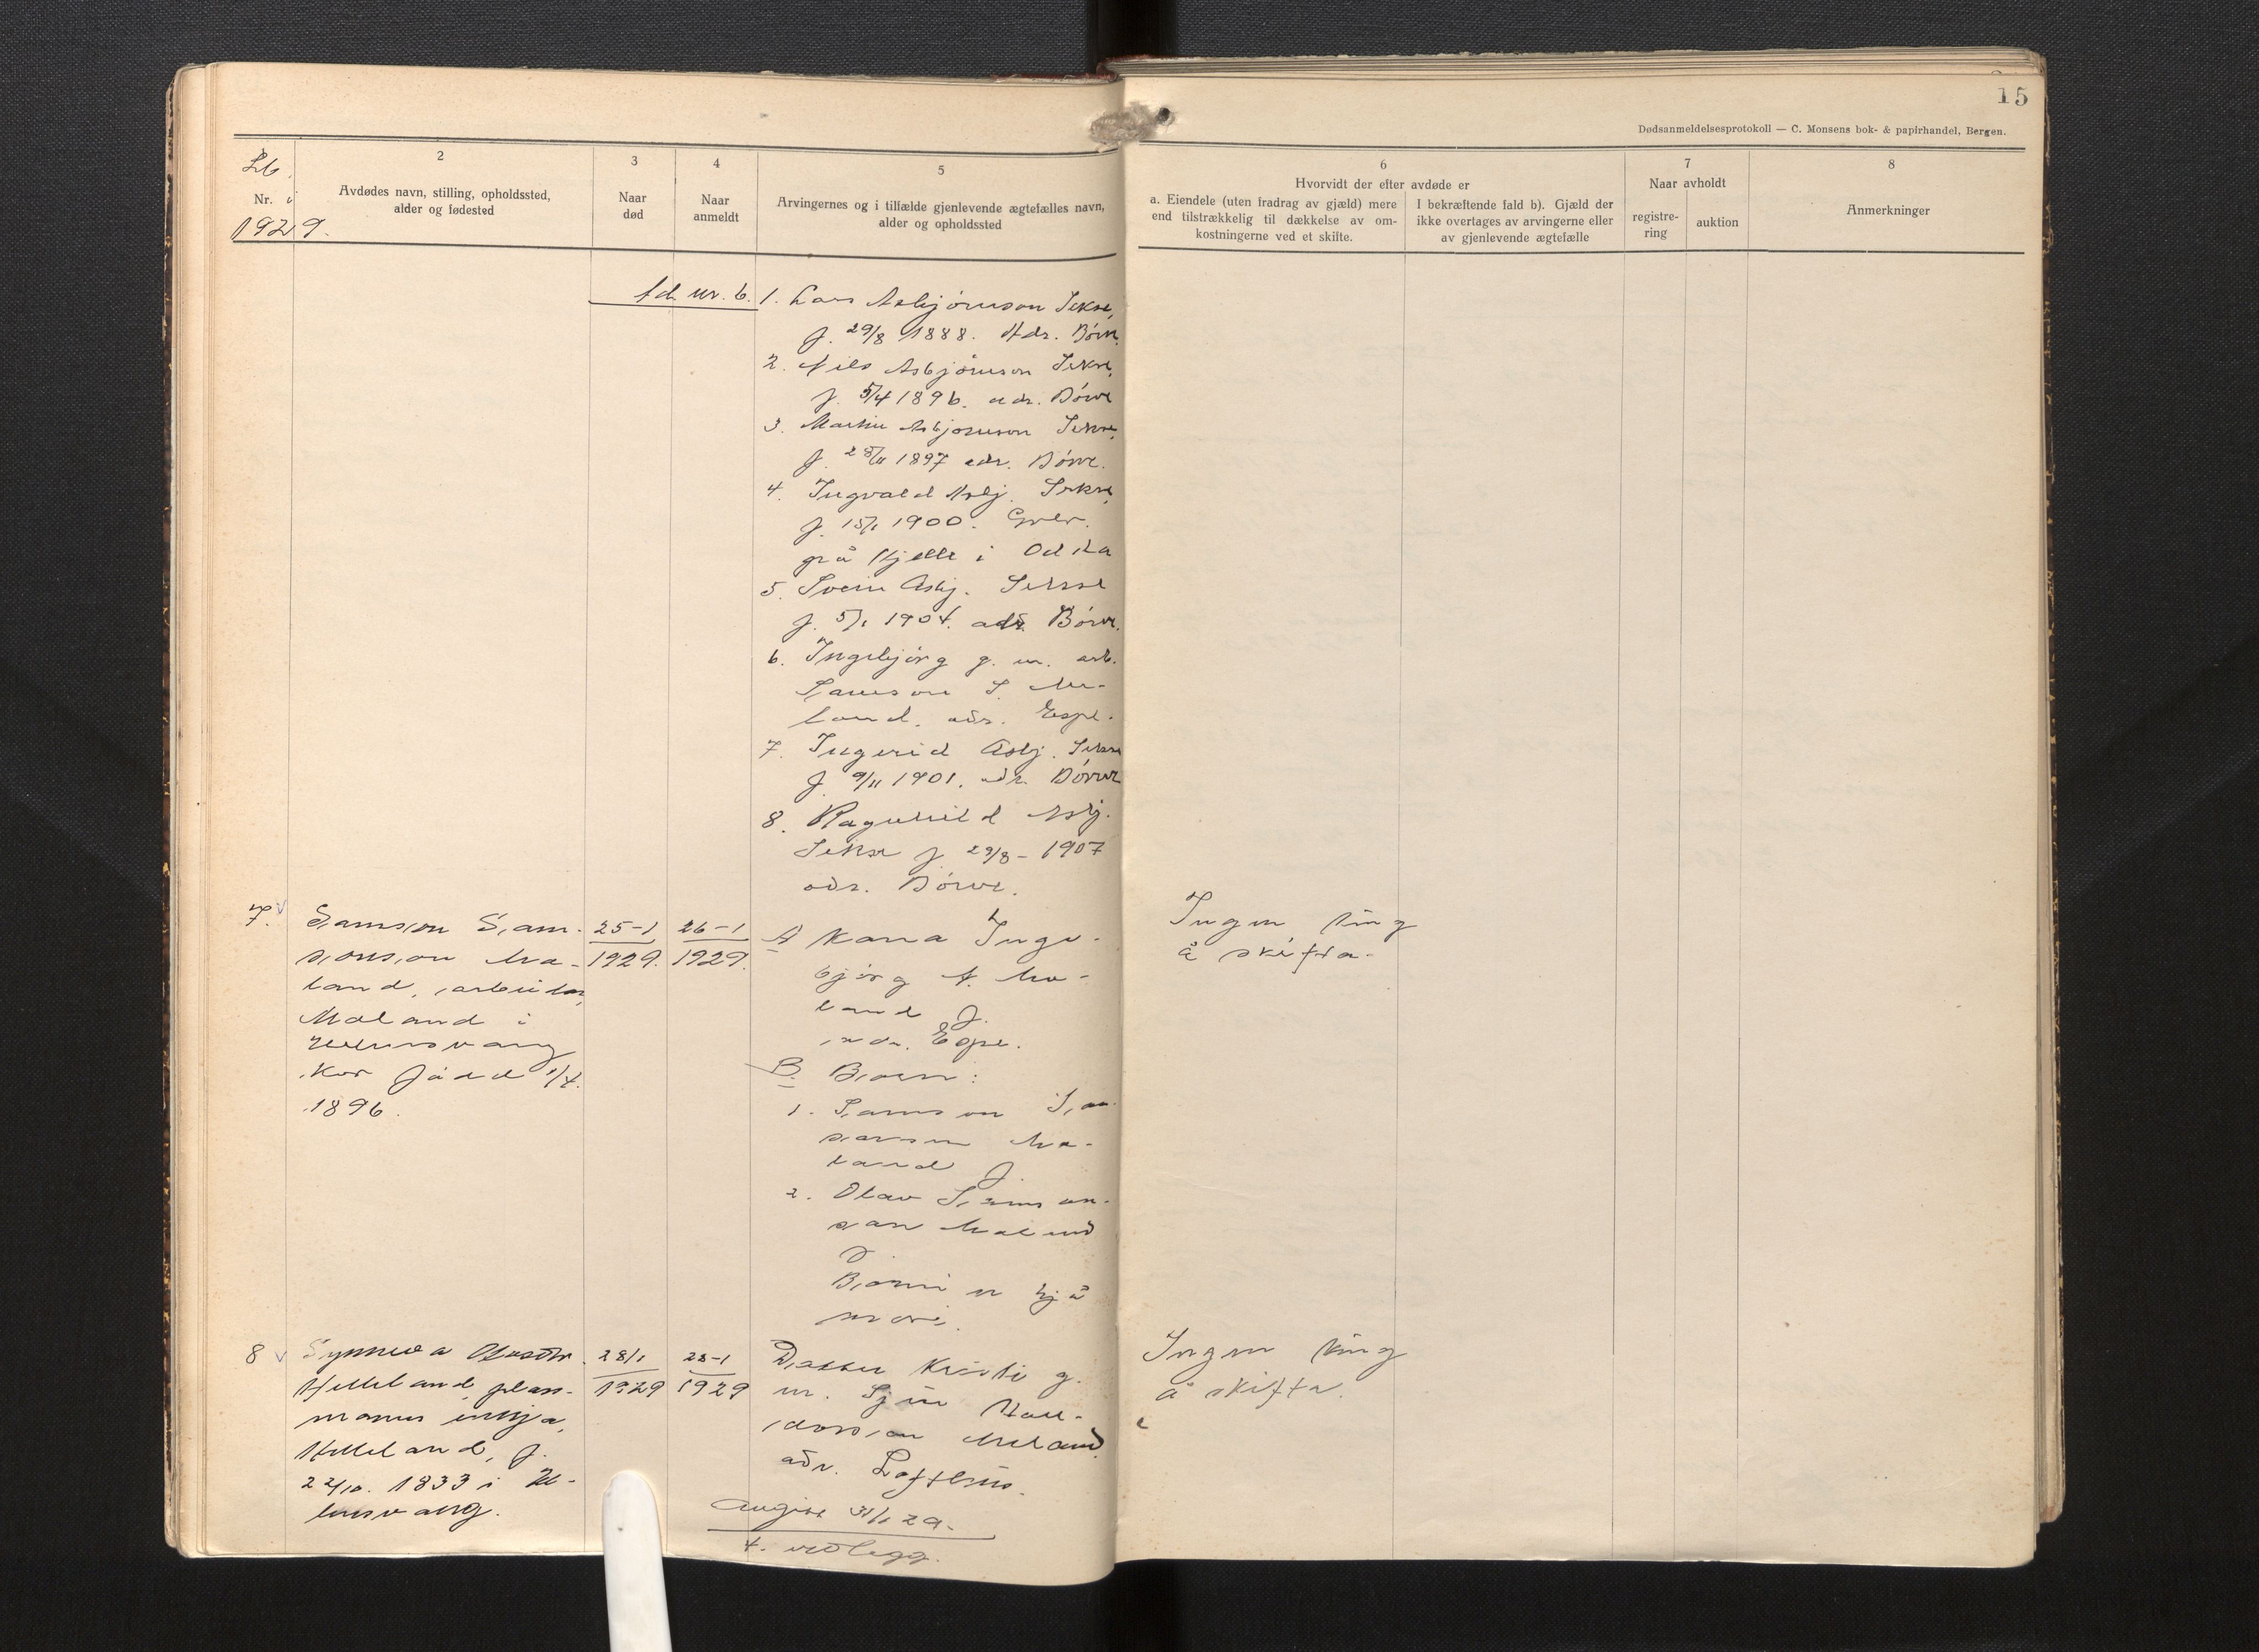 15
Dødsanmeldelsesprotokoll — C. Monsens bok- & papirhandel, Bergen.
Lb.
Nr. i
1929.
2
Avdødes navn, stilling, opholdssted,
alder og fødested
3
Naar
død
4
Naar
anmeldt
5
Arvingernes og i tilfælde gjenlevende ægtefælles navn,
alder og opholdssted
6
Hvorvidt der efter avdøde er
a. Eiendele (uten fradrag av gjæld) mere
end tilstrækkelig til dækkelse av om-
kostningerne ved et skifte.
I bekræftende fald b). Gjæld der
ikke overtages av arvingerne eller
av gjenlevende ægtefælle
7
Naar avholdt
registre-
ring
auktion
8
Anmerkninger
nr. 6.
1. Lars Asbjörnson Sekse,
f. 29/8 1888. Adr. Börve
2. Nils Asbjörnson Sekse,
f. 5/4 1896. adr. Börve
3. Asbjörnson Sekse,
f. 28/11 1897 adr. Börve.
4. Ingvald Asbj. Sekse,
f. 15/1 1900.
på Hjelle i Odda
5. Svein Asbj. Sekse
f. 5/1 1904. adr. Börve.
6. Ingebjörg g. m. arb.
Samson S. Me-
land, adr. Espe.
7. Ingerid Asbj. Sekse
f. 9/11 1901. adr. Börve
8. Ragnhild Asbj.
Sekse f. 29/8 - 1907
adr. Börve.
7.
Samson Sam-
sonson Me-
land, arbeidar,
Meland i
Ullensvang
Kor född 1/4.
1896.
25-1
1929.
26-1
1929.
A Kona Inge-
björg A. Me-
land f.
adr. Espe.
B. Born:
1. Samson Sam-
sonson Me-
land f.
2. Olav Samson-
son Meland
f.
Borni er hjå
mori.
Ingen ting
å skifta.
8
Synneva
Helleland, plass-
manns enkja,
Helleland, f.
22/10. 1833 i Ul-
lensvang.
28/1
1929
28-1
1929
Dotter Kristi g.
m. Hall-
dorson Meland,
adr. Lofthus.
Ingen ting
å skifta.
31/1 29.